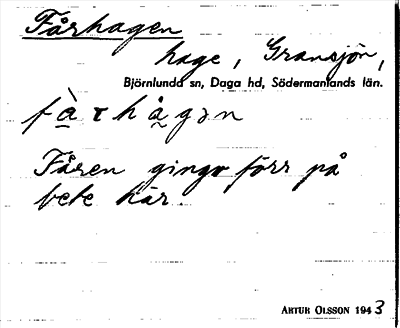 Fårhagen
hage, Gransjön,
Björnlunda sn, Daga hd, Södermanlands län.
fà̱rhå̰gən
Fåren gingo förr på
bete här.
ARTUR OLSSON 1943